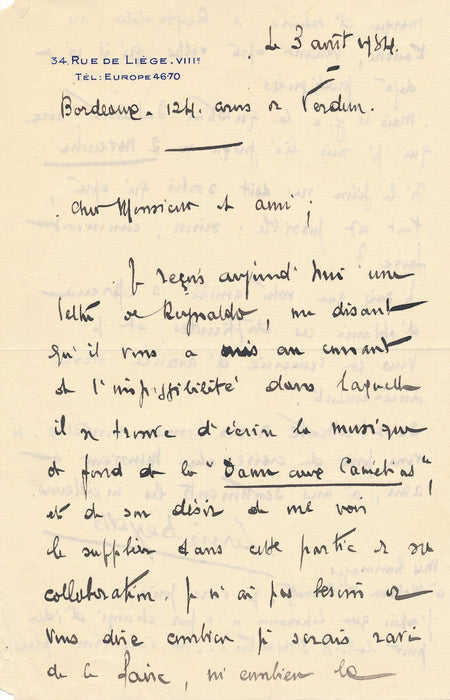 Le 3 août 1934.
34, RUE DE LIÈGE. VIIIe
TÉL: EUROPE 46-70
Bordeaux. 124 cours de Verdun.
Cher Monsieur et ami,
Je reçois aujourd'hui une
lettre de Reynaldo, me disant
qu'il vous a mis au courant
de l'impossibilité dans laquelle
il se trouve d'écrire la musique
de fond de la "Dame aux Camélias",
et de son désir de me voir
le suppléer dans cette partie de sa
collaboration. Je n'ai pas besoin de
vous dire combien je serais ravi
de le faire, ni combien le